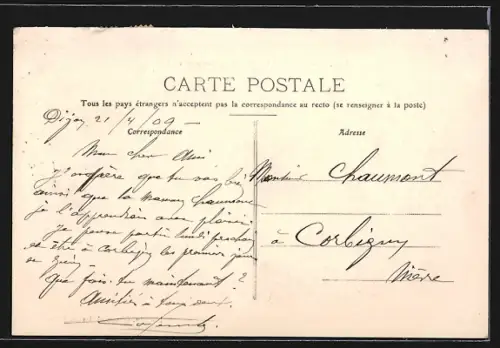 CARTE POSTALE
Tous les pays étrangers n'acceptent pas la correspondance au recto (se renseigner à la poste)
Dijon 21/4/09
Correspondance
Adresse
Mon cher Ami
J'espère que tu vas bien
ainsi que la maman Chaumont
je l'apprendrai avec plaisir
Je pense partir lundi prochain
et être à Corbigny les premiers jours
de
Que fais-tu maintenant ?
Amitiés à tous deux.
Monsieur Chaumont
à Corbigny
Nièvre